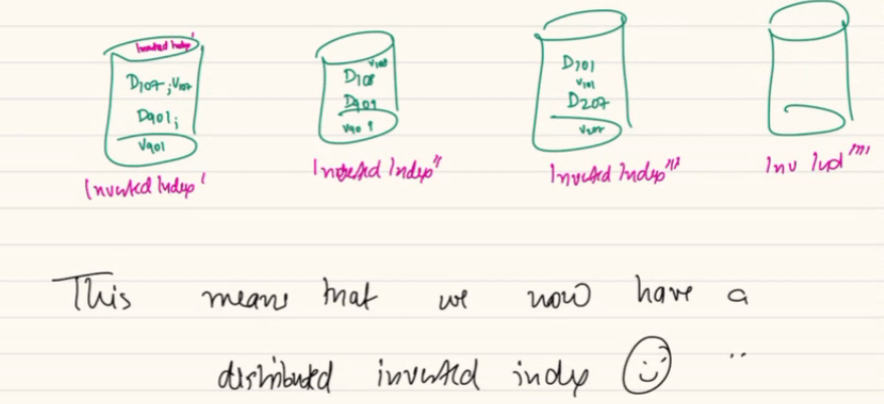 Inverted Index'
D107; V107
D901;
V901
Inverted Index'
V108
D108
D909
V909
Inverted Index"
D201
V201
D207
V207
Inverted Index"'
Inv Ind""
This means that we now have a
distributed inverted index